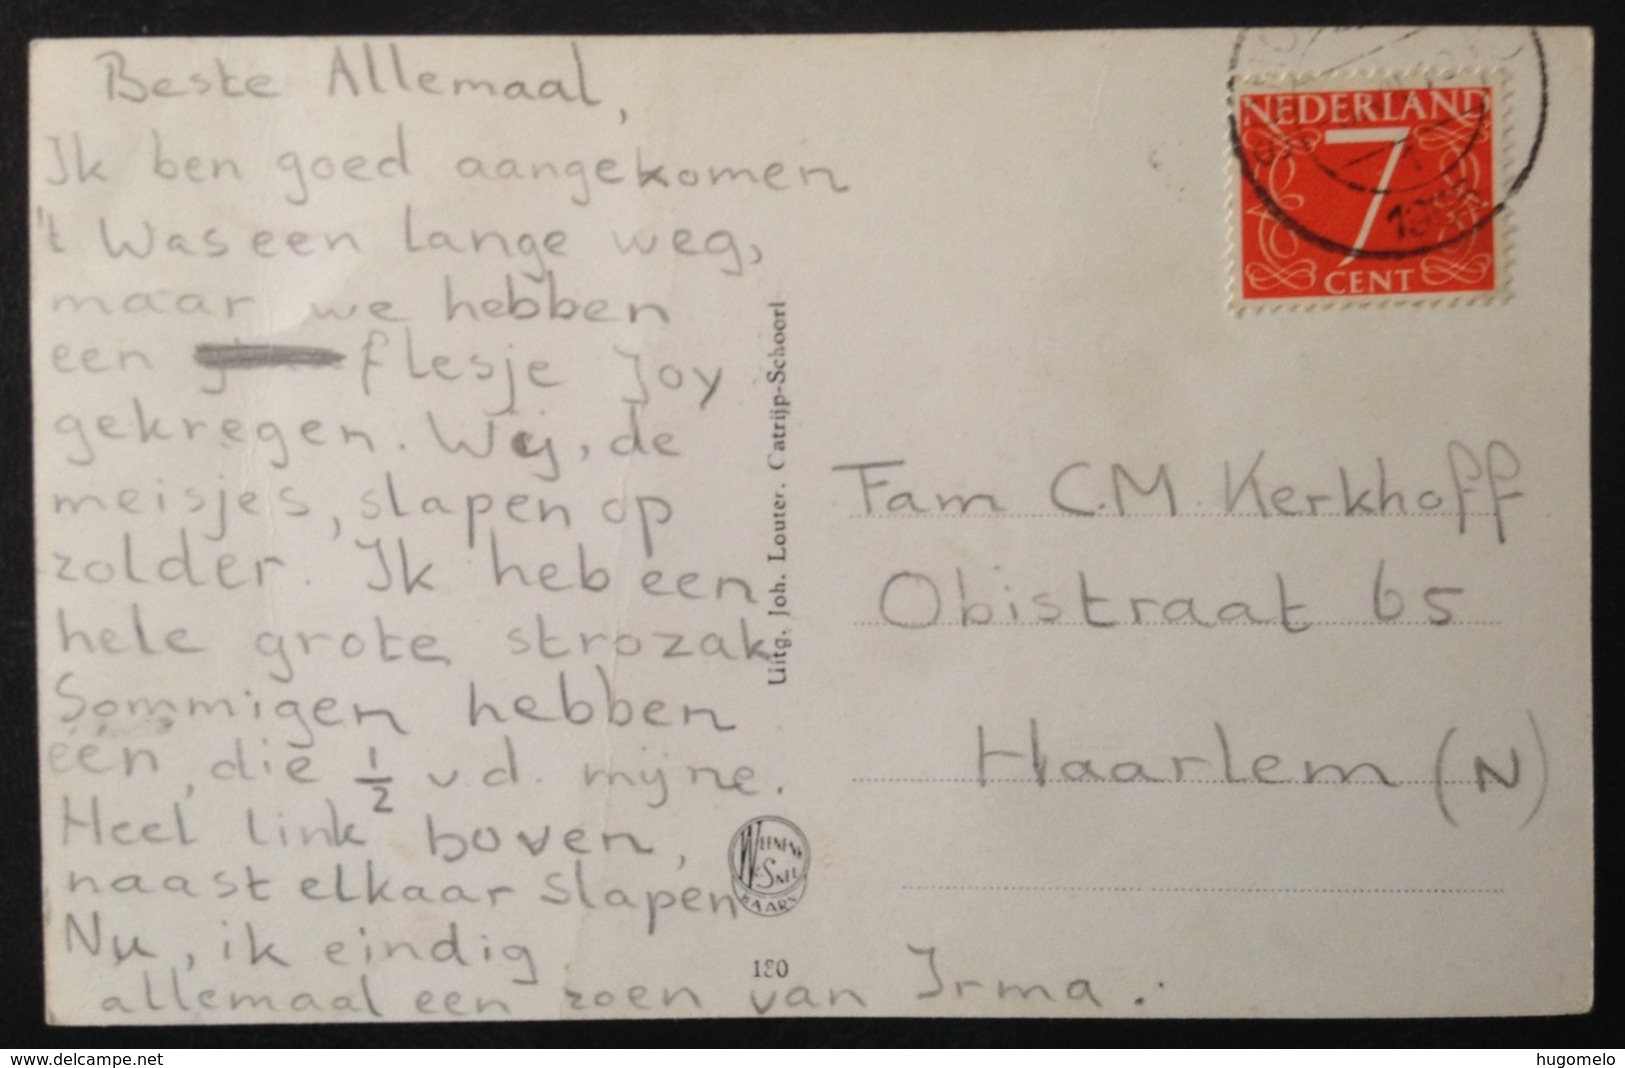 Beste Allemaal,
Ik ben goed aangekomen
't Was een lange weg,
maar we hebben
een flesje Joy
gekregen. Wij, de
meisjes, slapen op
zolder. Ik heb een
hele grote strozak
Sommigen hebben
één, die 1/2 v.d. mijne.
Heel link boven,
naast elkaar slapen
Nu, ik eindig
allemaal een zoen van Irma.
Uitg. Joh. Louter. Catrijp-Schoorl
WEENENK
& SNEL
BAARN
180
NEDERLAND
7
CENT
Fam C.M. Kerkhoff
Obistraat 65
Haarlem (N)
www.delcampe.net
hugomelo